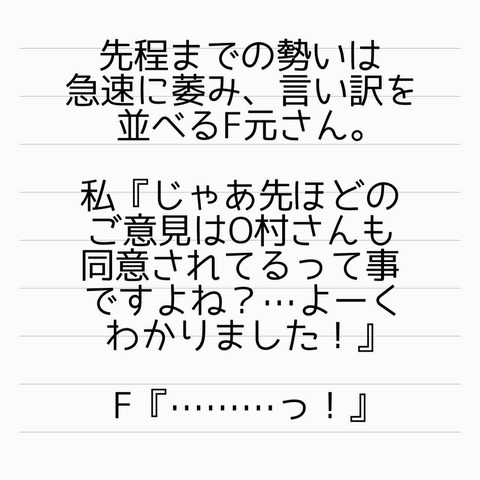 先程までの勢いは
急速に萎み、言い訳を
並べるF元さん。
私『じゃあ先ほどの
ご意見はO村さんも
同意されてるって事
ですよね？…よーく
わかりました！』
F『………っ！』